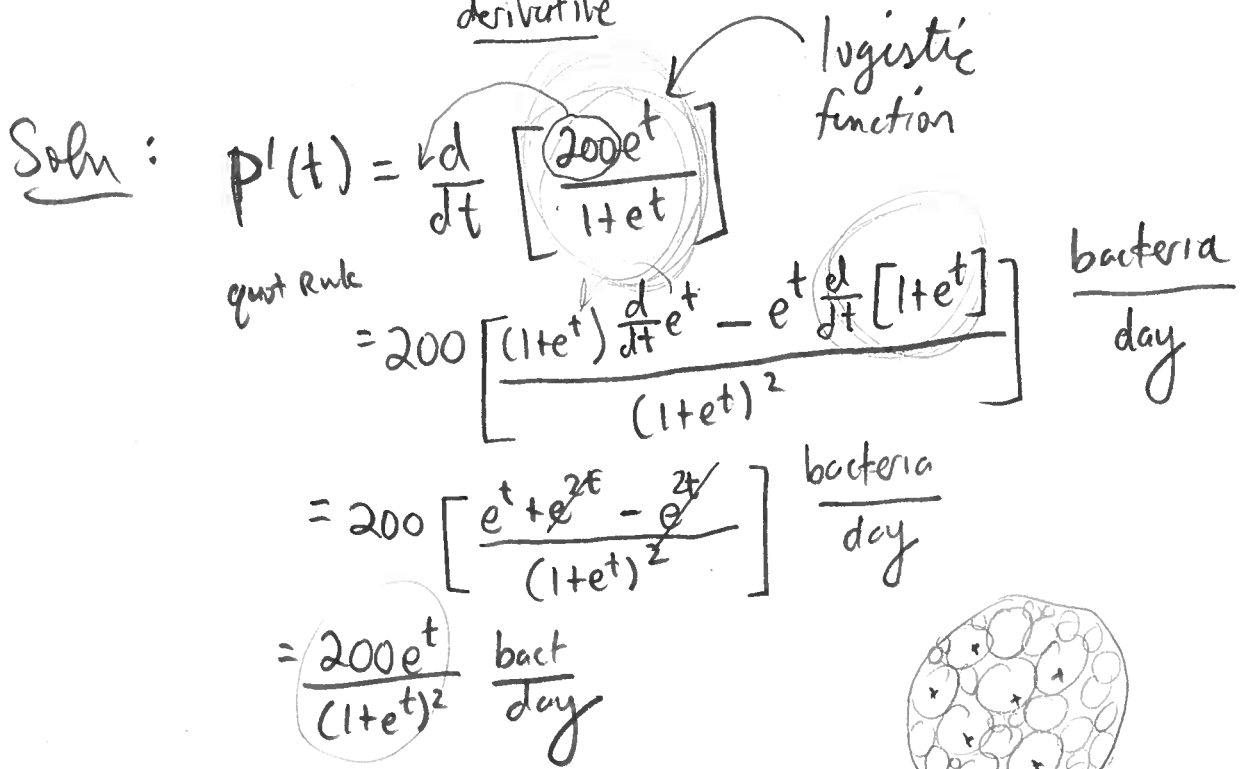 derivative
logistic
function
Soln : P'(t) = d/dt [ 200e^t / (1+e^t) ]
quot Rule
= 200 [ ( (1+e^t) d/dt e^t − e^t d/dt [1+e^t] ) / (1+e^t)^2 ] bacteria/day
= 200 [ ( e^t + e^2t − e^2t ) / (1+e^t)^2 ] bacteria/day
= 200e^t / (1+e^t)^2 bact/day